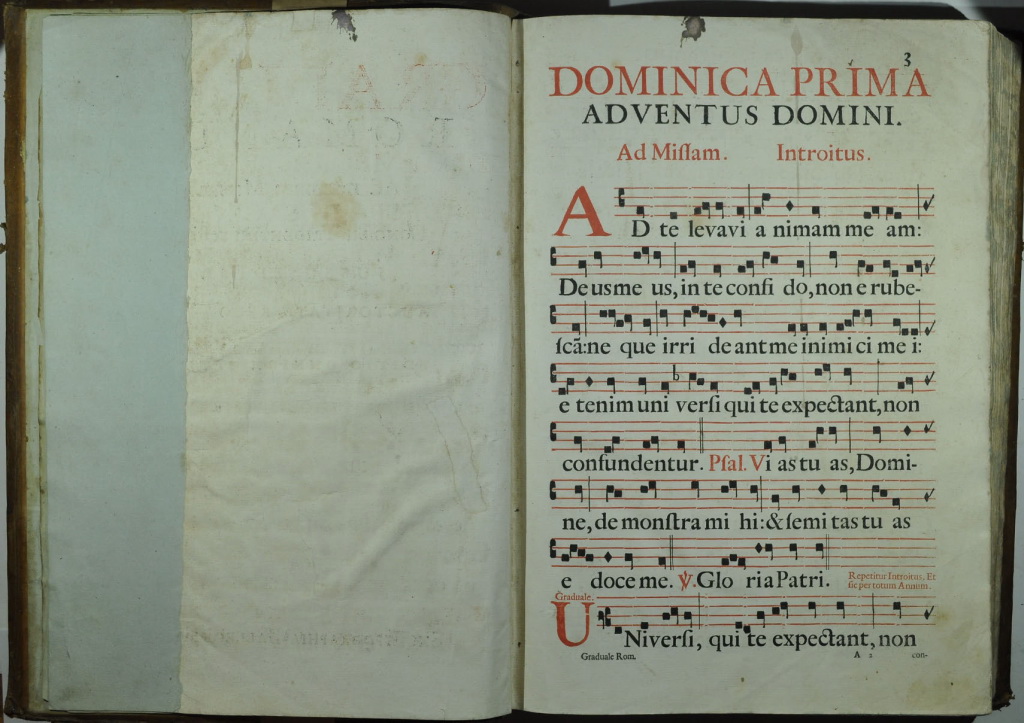 3
DOMINICA PRIMA
ADVENTUS DOMINI.
Ad Miſſam. Introitus.
AD te levavi a nimam me am:
De us me us, in te confi do, non e rube-
ſcã: ne que irri de ant me inimi ci me i:
e tenim uni verſi qui te expectant, non
confundentur. Pſal. Vi as tu as, Domi-
ne, de monſtra mi hi: & ſemi tas tu as
e doce me. ℣. Glo ria Patri. Repetitur Introitus. Et
ſic per totum Annum.
Graduale.
UNiverſi, qui te expectant, non
Graduale Rom. A 2 con-